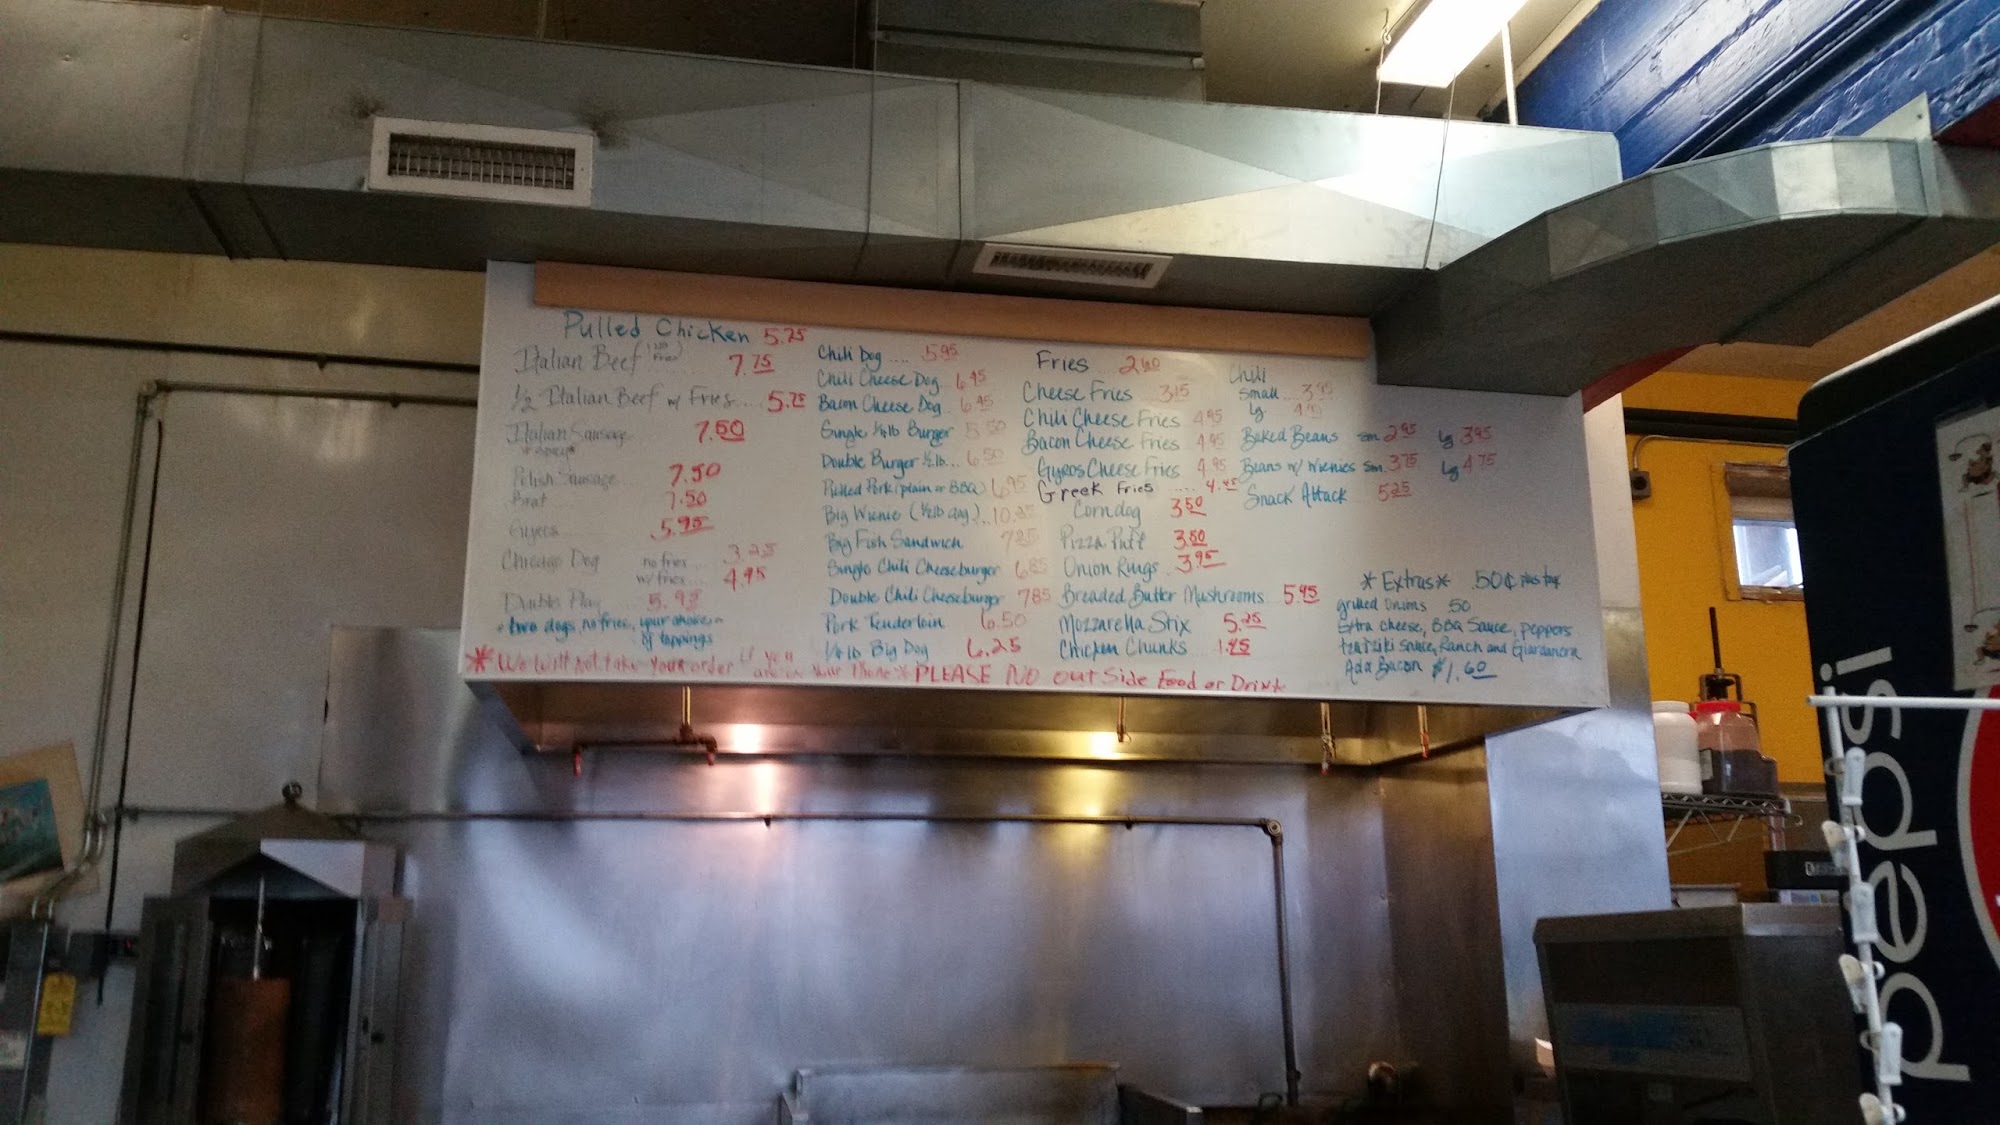 Pulled Chicken 5.25
Italian Beef (no fries) 7.75
1/2 Italian Beef w/ Fries.... 5.75
Italian Sausage 7.50
Polish Sausage 7.50
Brat 7.50
Gyros 5.95
Chicago Dog no fries... 3.25
w/fries... 4.95
Double Play 5.95
two dogs, no fries, your choice
of toppings
Chili Dog .... 5.95
Chili Cheese Dog 6.45
Bacon Cheese Dog 6.45
Single 1/4lb Burger 5.50
Double Burger 1/2lb... 6.50
Pulled Pork (plain or BBQ) 6.95
Big Wienie (1/2lb dog)...10.25
Big Fish Sandwich 7.25
Single Chili Cheeseburger 6.85
Double Chili Cheeseburger 7.85
Pork Tenderloin 6.50
1/4 lb Big Dog 6.25
Fries 2.60
Cheese Fries 3.15
Chili Cheese Fries 4.95
Bacon Cheese Fries 4.95
Gyros Cheese Fries 4.95
Greek Fries .... 4.45
Corndog 3.50
Pizza Puff 3.50
Onion Rings 3.95
Breaded Butter Mushrooms 5.95
Mozzarella Stix 5.25
Chicken Chunks
Chili
Small 3.95
Lg
Baked Beans sm. 2.95 Lg 3.95
Beans w/ Wienies sm. 3.75 Lg 4.75
Snack Attack 5.25
*Extras* .50¢ plus tax
grilled onions .50
Extra cheese, BBQ Sauce, peppers
tzatziki sauce, Ranch and Giardanera
Add Bacon $1.60
*We will not take your order if you
are on your Phone* PLEASE NO outside Food or Drink
pepsi